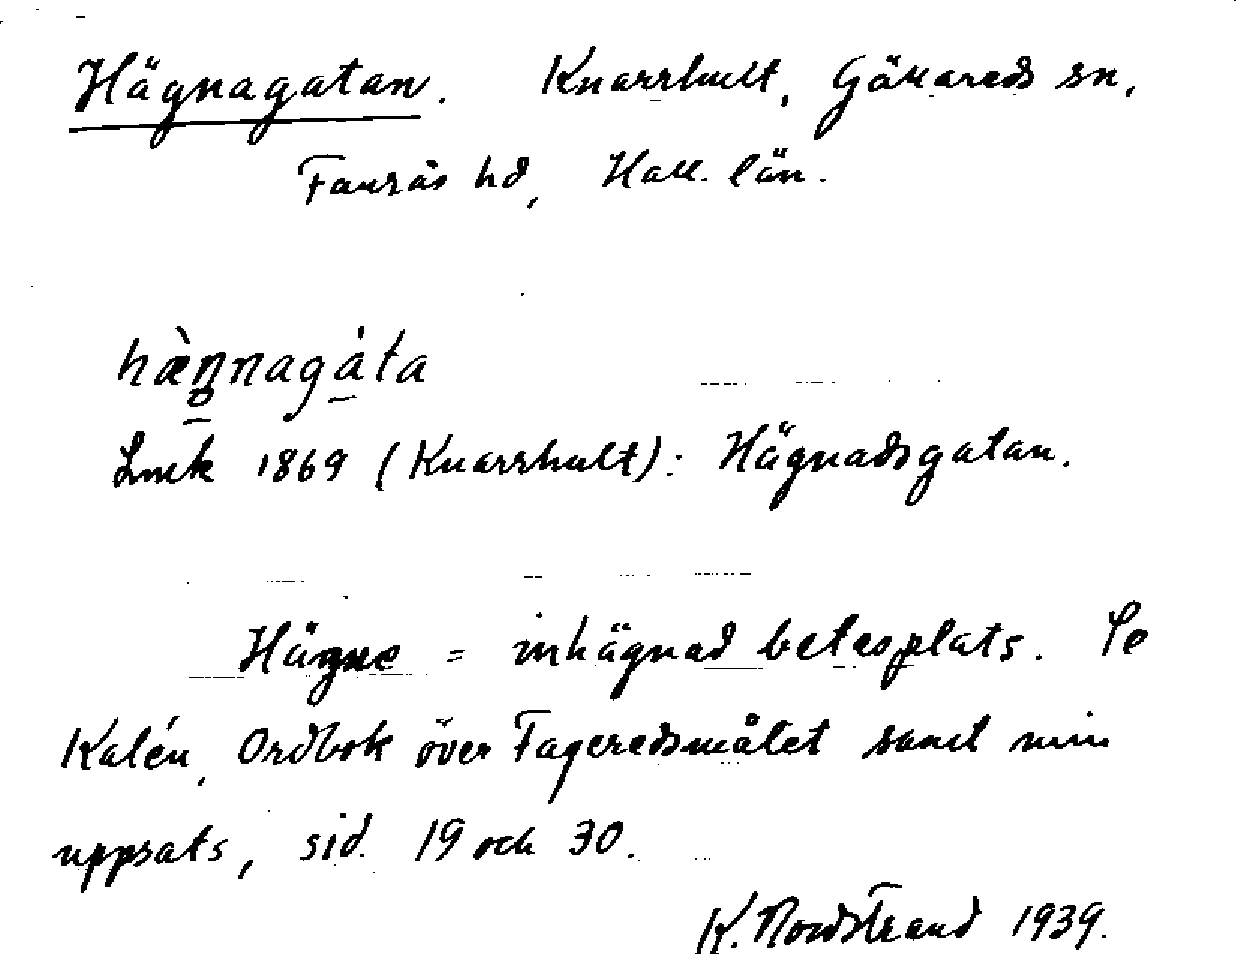 Hägnagatan. Knarrhult, Gällareds sn,
Faurås hd, Hall. län.
hæ̀n̥nagáta
Lmk 1869 (Knarrhult): Hägnadsgatan.
Hägne = inhägnad betesplats. Se
Kalén, Ordbok över Fageredsmålet samt min
uppsats, sid. 19 och 30.
K. Nordstrand 1939.